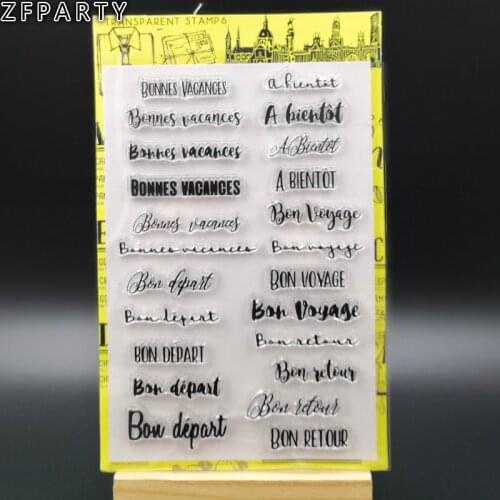 ZFPARTY
TRANSPARENT STAMPS
BONNES VACANCES
Bonnes vacances
Bonnes vacances
BONNES VACANCES
Bonnes vacances
Bonnes vacances
Bon départ
Bon départ
BON DÉPART
Bon départ
Bon départ
A bientôt
A bientôt
A Bientôt
A BIENTÔT
Bon Voyage
Bon voyage
BON VOYAGE
Bon Voyage
Bon retour
Bon retour
Bon retour
BON RETOUR